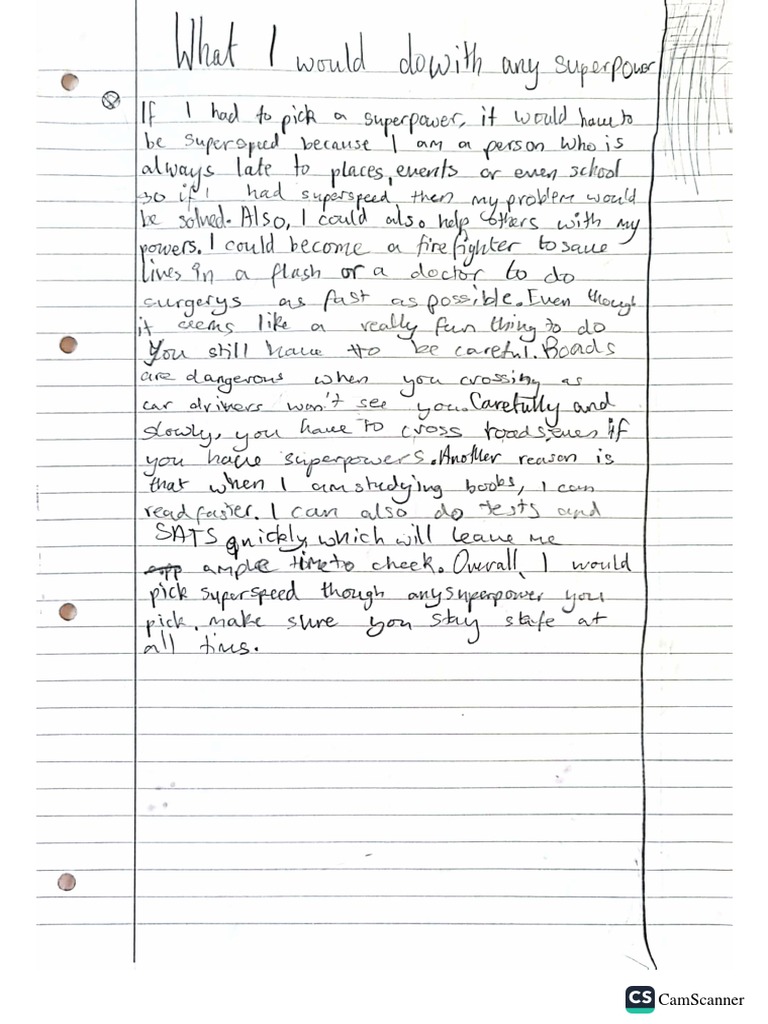 What I would do with any superpower
If I had to pick a superpower, it would have to
be superspeed because I am a person who is
always late to places, events or even school
so if I had superspeed then my problem would
be solved. Also, I could also help others with my
powers. I could become a firefighter to save
lives in a flash or a doctor to do
surgerys as fast as possible. Even though
it seems like a really fun thing to do
you still have to be careful. Roads
are dangerous when you crossing as
car drivers won't see you. Carefully and
slowly, you have to cross roads, even if
you have superpowers. Another reason is
that when I am studying books, I can
read faster. I can also do tests and
SATS quickly which will leave me
ample time to check. Overall, I would
pick superspeed though any superpower you
pick, make sure you stay safe at
all tims.
CS CamScanner